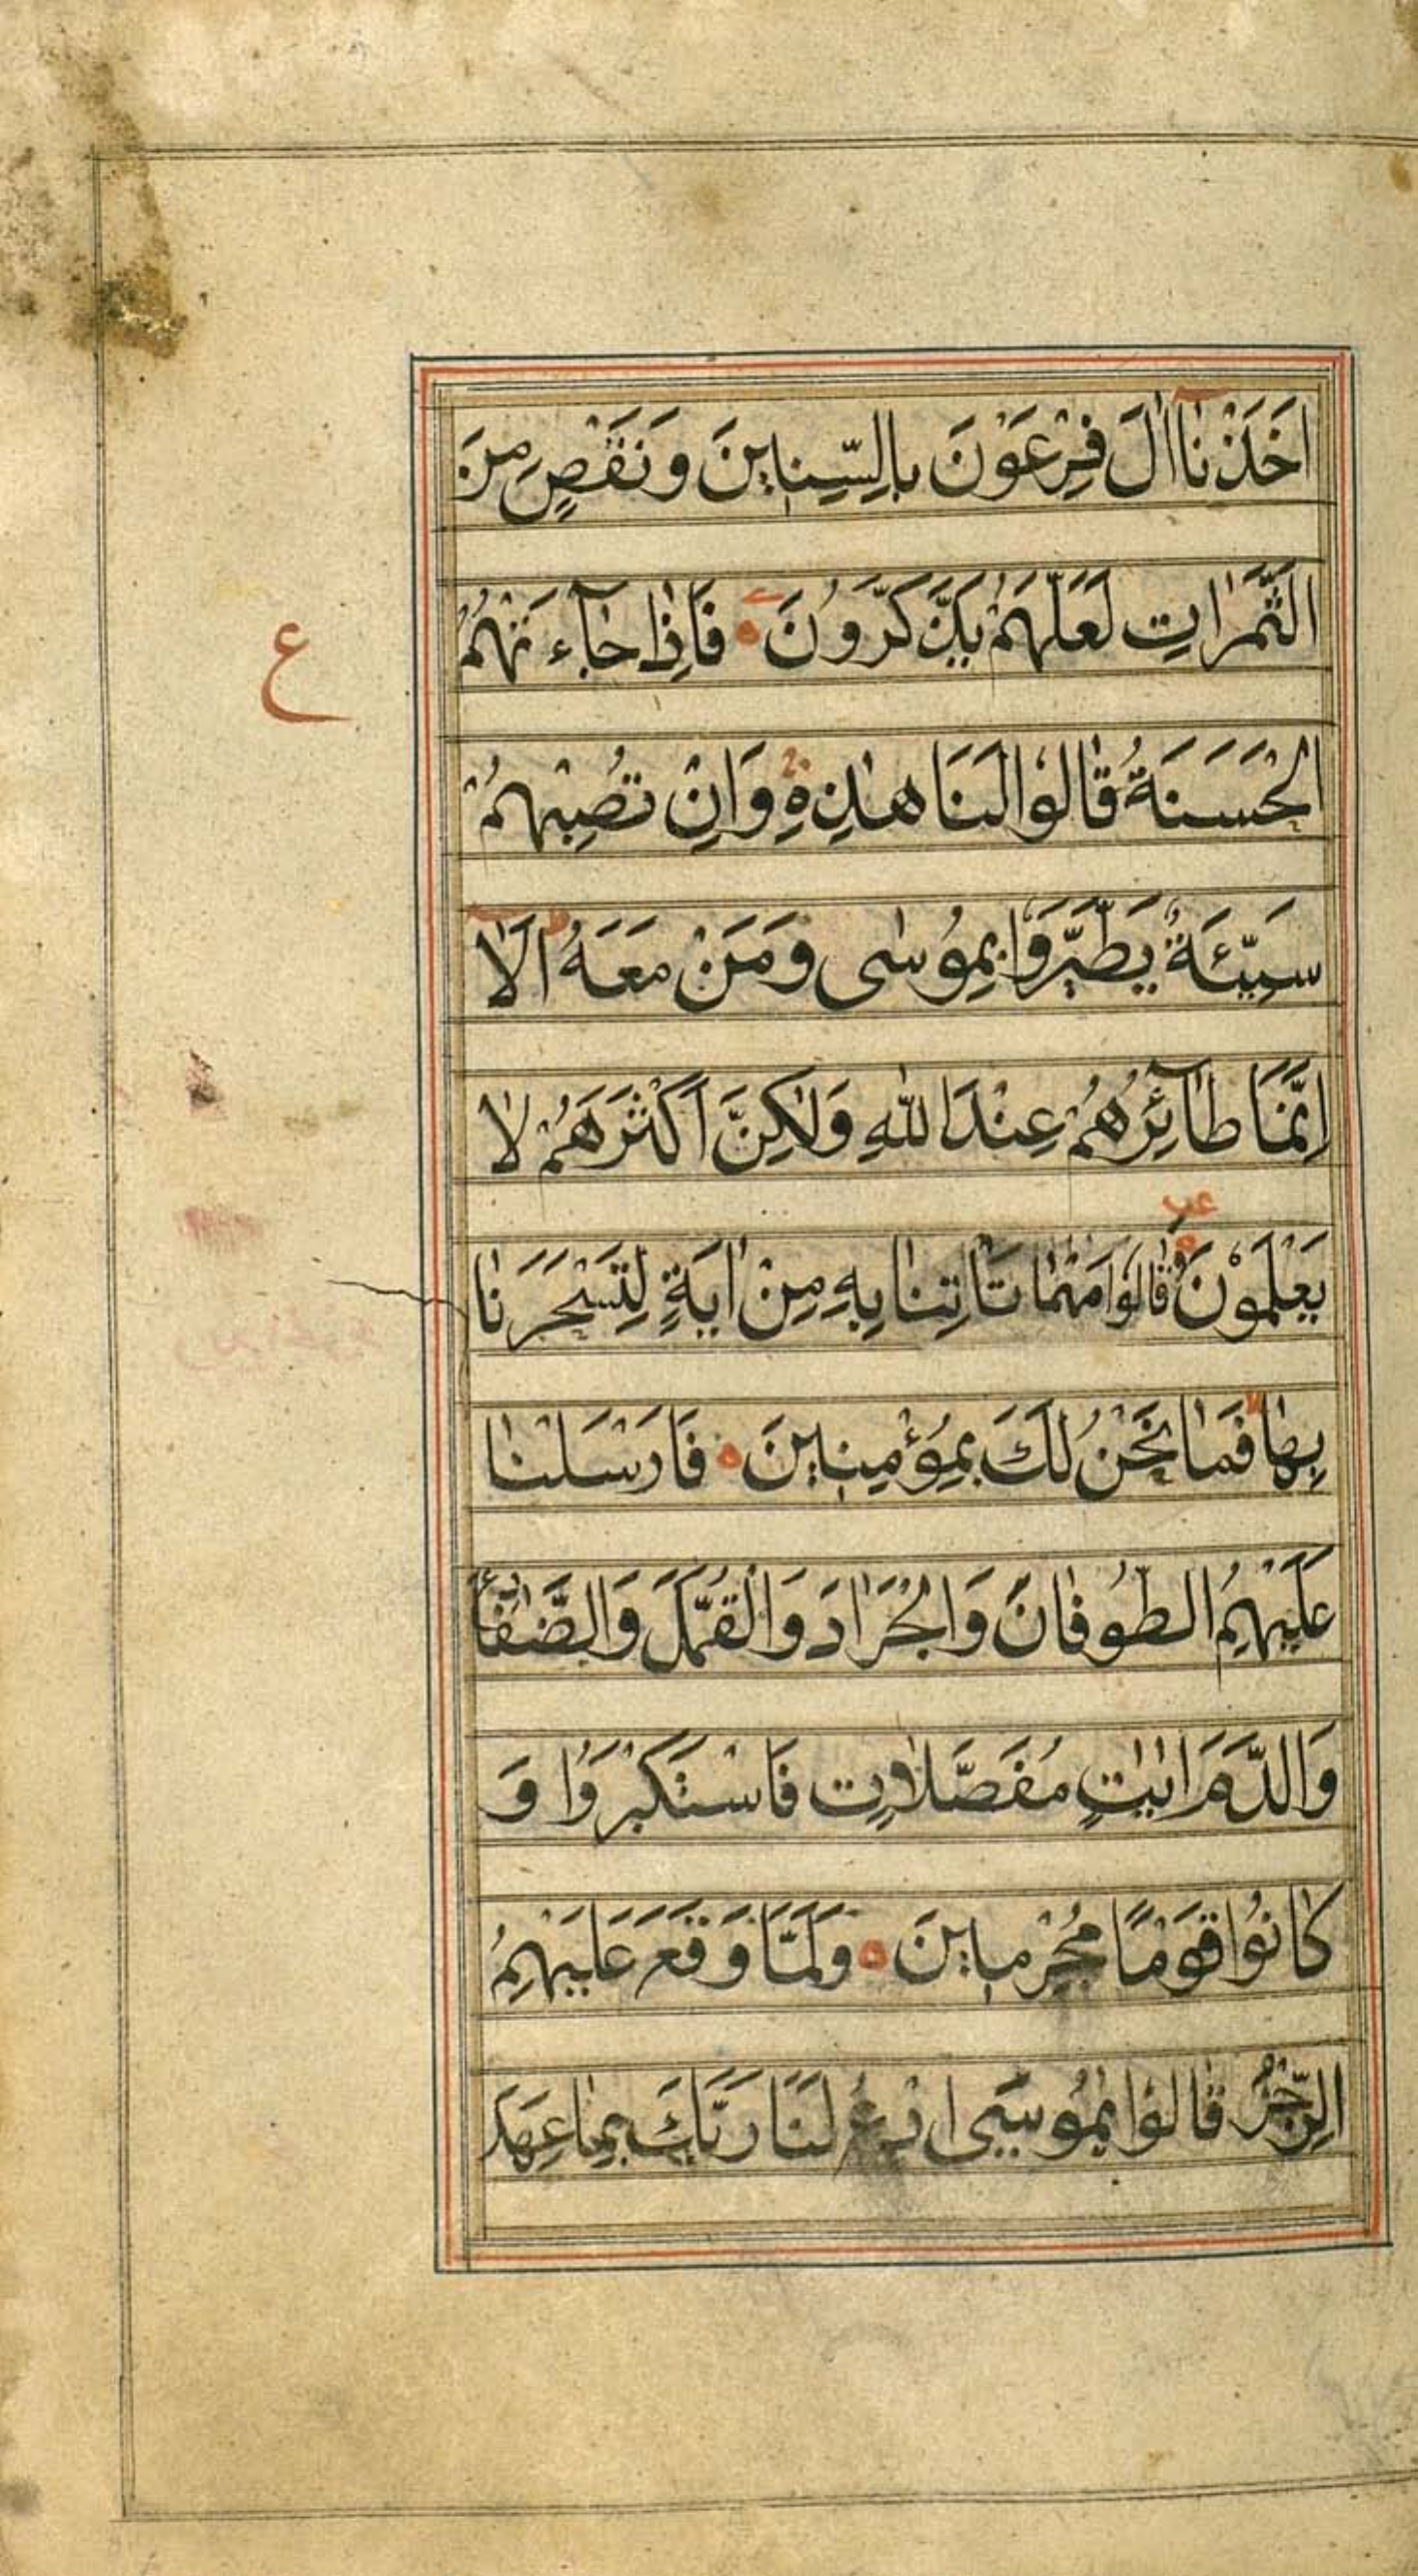 اَخَذْنٰا اٰلَ فِرْعَوْنَ بِالسِّنِينَ وَنَقْصٍ مِنَ
ع
الثَّمَرٰاتِ لَعَلَّهُمْ يَذَّكَّرُونَ ه فَاِذٰا جٰآءَتْهُمُ
الْحَسَنَةُ قٰالُوا لَنَا هٰذِهِ وَاِنْ تُصِبْهُمْ
سَيِّئَةٌ يَطَّيَّرُوا بِمُوسٰى وَمَنْ مَعَهُ اَلٰا
اِنَّمٰا طٰآئِرُهُمْ عِنْدَ اللّٰهِ وَلٰكِنَّ اَكْثَرَهُمْ لٰا
يَعْلَمُونَ ه وَقٰالُوا مَهْمٰا تَأْتِنٰا بِهِ مِنْ اٰيَةٍ لِتَسْحَرَنٰا
بِهٰا فَمٰا نَحْنُ لَكَ بِمُؤْمِنِينَ ه فَاَرْسَلْنٰا
عَلَيْهِمُ الطُّوفٰانَ وَالْجَرٰادَ وَالْقُمَّلَ وَالضَّفٰا
وَالدَّمَ اٰيٰاتٍ مُفَصَّلٰاتٍ فَاسْتَكْبَرُوا وَ
كٰانُوا قَوْمًا مُجْرِمِينَ ه وَلَمّٰا وَقَعَ عَلَيْهِمُ
الرِّجْزُ قٰالُوا يٰمُوسَى ادْعُ لَنٰا رَبَّكَ بِمٰا عَهِدَ